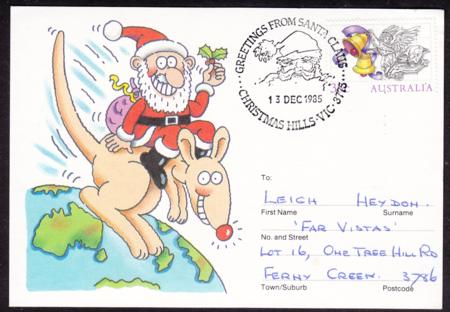 GREETINGS FROM SANTA CLAUS
13 DEC 1985
CHRISTMAS HILLS·VIC·3775
AUSTRALIA
To:
LEIGH HEYDON.
First Name Surname
'FAR VISTAS'
No. and Street
LOT 16, ONE TREE HILL RD
FERNY CREEK. 3786
Town/Suburb Postcode